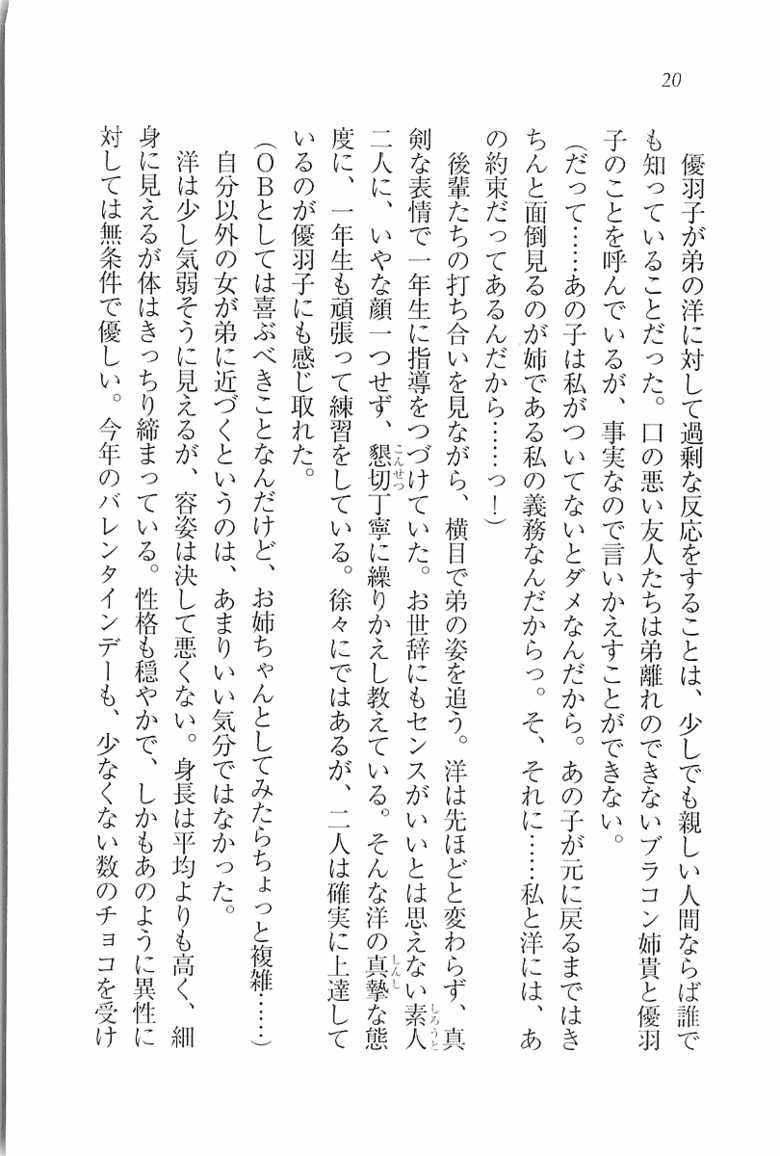 20
優羽子が弟の洋に対して過剰な反応をすることは、少しでも親しい人間ならば誰で
も知っていることだった。口の悪い友人たちは弟離れのできないブラコン姉貴と優羽
子のことを呼んでいるが、事実なので言いかえすことができない。
（だって……あの子は私がついてないとダメなんだから。あの子が元に戻るまではき
ちんと面倒見るのが姉である私の義務なんだからっ。そ、それに……私と洋には、あ
の約束だってあるんだから……っ！）
後輩たちの打ち合いを見ながら、横目で弟の姿を追う。洋は先ほどと変わらず、真
剣な表情で一年生に指導をつづけていた。お世辞にもセンスがいいとは思えない素人
二人に、いやな顔一つせず、懇切丁寧に繰りかえし教えている。そんな洋の真摯な態
度に、一年生も頑張って練習をしている。徐々にではあるが、二人は確実に上達して
いるのが優羽子にも感じ取れた。
（ＯＢとしては喜ぶべきことなんだけど、お姉ちゃんとしてみたらちょっと複雑……）
自分以外の女が弟に近づくというのは、あまりいい気分ではなかった。
洋は少し気弱そうに見えるが、容姿は決して悪くない。身長は平均よりも高く、細
身に見えるが体はきっちり締まっている。性格も穏やかで、しかもあのように異性に
対しては無条件で優しい。今年のバレンタインデーも、少なくない数のチョコを受け